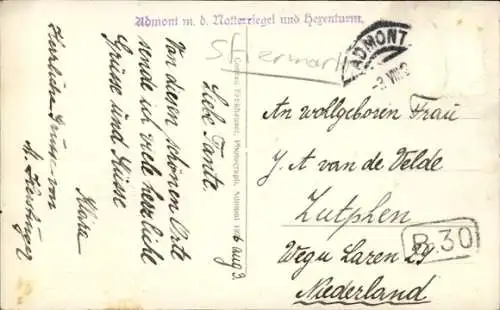 Admont m. d. Natterriegel und Hexenturm.
Stiermark
ADMONT
Liebe Tante.
Von diesem schönen Orte
sende ich viele herzliche
Grüsse und Küsse
Klaire
Herzliche Grüsse von
Photograph, Admont
6 aug 3.
An wollgeboren Frau
J. A van de Velde
Zutphen
Weg u Laren 29
Niederland
B.30